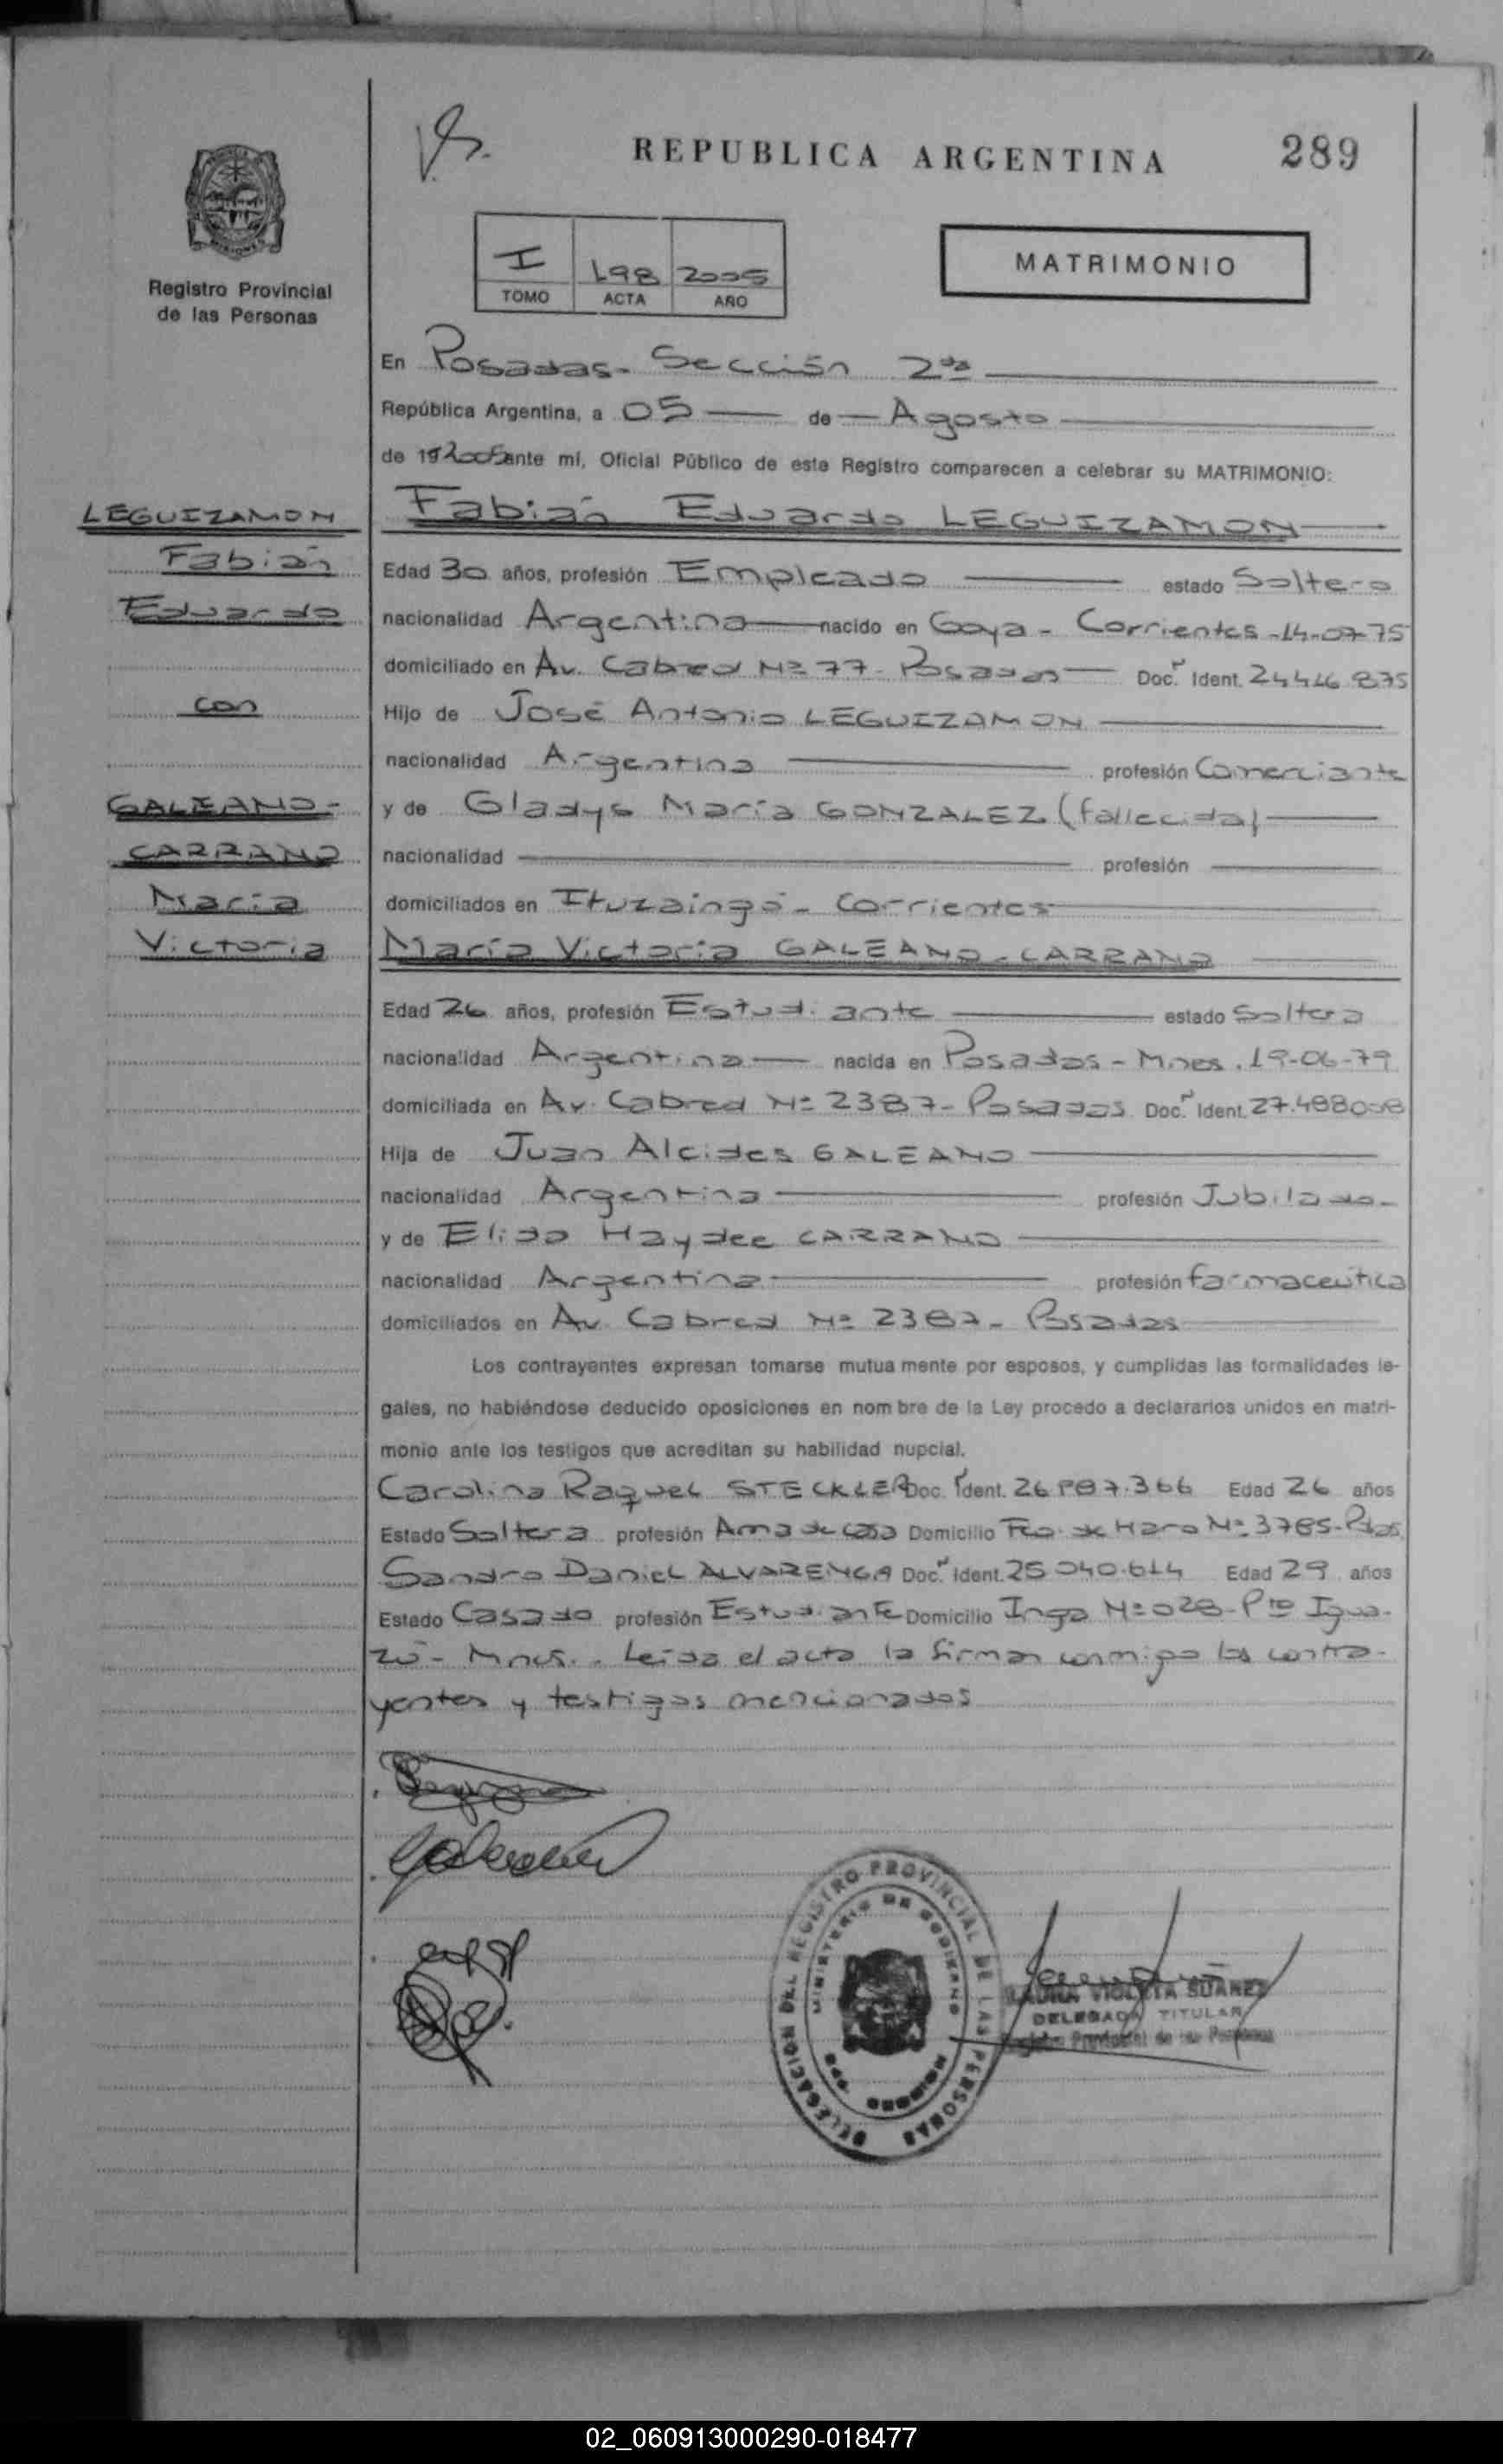 REPUBLICA ARGENTINA
289
I 198 2005
TOMO ACTA AÑO
MATRIMONIO
Registro Provincial
de las Personas
En Posadas- Sección 2da
República Argentina, a 05 de Agosto
de 192005 ante mí, Oficial Público de este Registro comparecen a celebrar su MATRIMONIO:
LEGUIZAMON
Fabián
Eduardo
con
GALEANO-
CARRANO
María
Victoria
Fabián Eduardo LEGUIZAMON
Edad 30 años, profesión Empleado estado Soltero
nacionalidad Argentina nacido en Goya - Corrientes -14-07-75
domiciliado en Av. Cabred Nº 77- Posadas Doc. Ident. 24.446.875
Hijo de José Antonio LEGUIZAMON
nacionalidad Argentina profesión Comerciante
y de Gladys María GONZALEZ (fallecida)
nacionalidad profesión
domiciliados en Ituzaingó - Corrientes
María Victoria GALEANO-CARRANO
Edad 26 años, profesión Estudiante estado Soltera
nacionalidad Argentina nacida en Posadas - Mnes. 19-06-79
domiciliada en Av. Cabred Nº 2387- Posadas Doc. Ident. 27.498008
Hija de Juan Alcides GALEANO
nacionalidad Argentina profesión Jubilado-
y de Elida Haydee CARRANO
nacionalidad Argentina profesión farmaceútica
domiciliados en Av. Cabred Nº 2387- Posadas
Los contrayentes expresan tomarse mutua mente por esposos, y cumplidas las formalidades le-
gales, no habiéndose deducido oposiciones en nom bre de la Ley procedo a declararlos unidos en matri-
monio ante los testigos que acreditan su habilidad nupcial.
Carolina Raquel STECKLER Doc. Ident. 26.987.366 Edad 26 años
Estado Soltera profesión Ama de casa Domicilio Fco. de Haro Nº 3785-Pdas
Sandro Daniel ALVARENGA Doc. Ident. 25.040.614 Edad 29 años
Estado Casado profesión Estudiante Domicilio Inga Nº 028-Pto Igua-
zú- Mnes.. Leída el acta la firman conmigo los contra-
yentes y testigos mencionados
DELEGACION DEL REGISTRO PROVINCIAL DE LAS PERSONAS
MINISTERIO DE GOBIERNO
MISIONES
LAURA VIOLETA SUAREZ
DELEGADA TITULAR
Registro Provincial de las Personas
02_060913000290-018477